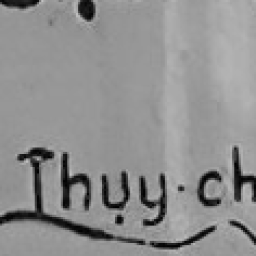 Thụy·ch